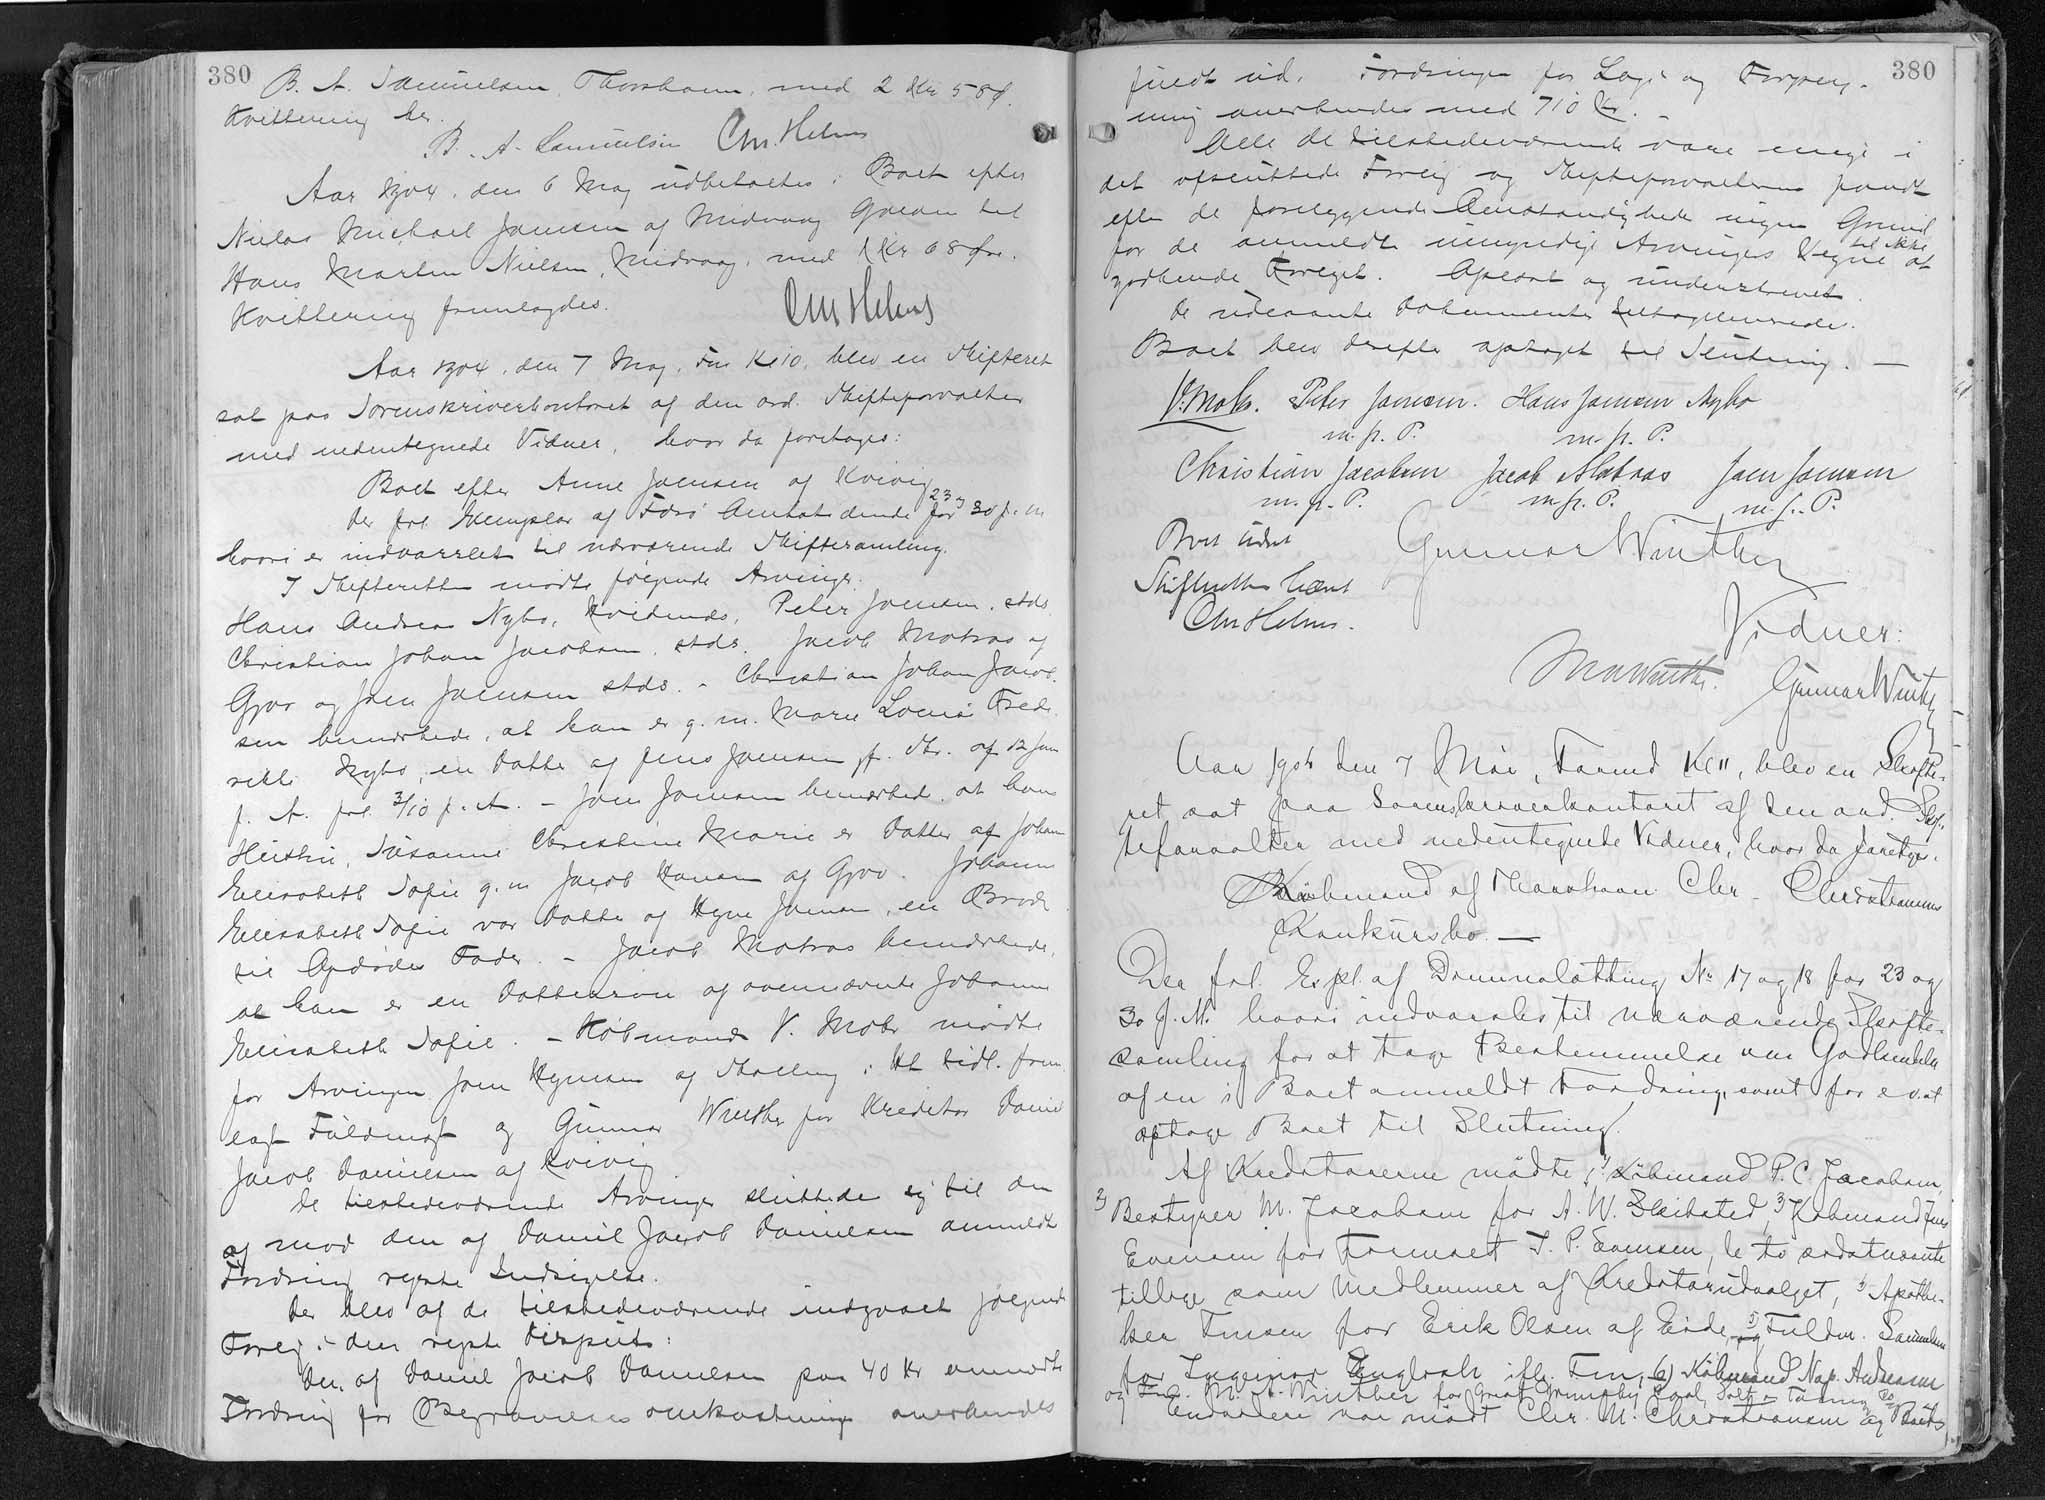 380
B. A. Samuelsen, Thorshavn, med 2 Kr 58 Ø.
Kvittering ber.
B. A. Samuelsen Chr. Helms
Aar 1904, den 6 Maj udbetaltes i Boet efter
Nielas Michael Jamsen af Midvaag Gælden til
Hans Martin Nielsen, Midvaag, med 1 Kr 68 Øre.
Kvittering fremlagdes.
Chr Helms
Aar 1904, den 7 Maj, Fm Kl 10, blev en Skifteret
sat paa Sorenskriverkontoret af den ord. Skifteforvalter
med nedentegnede Vidner, hvor da foretoges:
Boet efter Anne Joensen af Kvivig
Der frl. Exemplar af Færø Amtstidende for 23 og 30 f. m
hvori er indvarslet til nærværende Skiftesamling.
I Skifteretten mødte følgende Arvinger:
Hans Andreas Nybo, Kvidenæs, Peter Joensen, stds
Christian Johan Jacobsen, stds. Jacob Matras af
Gjov og Joen Joensen stds. - Christian Johan Jacob-
sen bemærkede, at han er g. m. Marie Lovise Frede-
rikke Nybo, en Datter af Jens Joensen, jf. Skr. af 12 Jan
f. A. frl. 3/10 f. A. - Joen Joensen bemærkede, at hans
Hustru, Susanne Christine Marie er Datter af Johanne
Elisabeth Sofie g. m Jacob Hansen af Gjov. Johanne
Elisabeth Sofie var Datter af Hgne Joensen, en Broder
til Afdødes Fader. - Jacob Matras bemærkede,
at han er en Dattersøn af ovennævnte Johanne
Elisabeth Sofie. - Købmand V. Mohr mødte
for Arvingen Joen Hgnesen af i Ht tidl. frem-
lagt Fuldmagt og Gunnar Winther for Kreditor Daniel
Jacob Danielsen af Kvivig
De tilstedeværende Arvinger sluttede sig til den
af mod den af Daniel Jacob Danielsen anmeldte
Fordring rejste Indsigelse.
Der blev af de tilstedeværende indgaaet følgende
Forlig i den rejste Disput:
Den af Daniel Jacob Danielsen paa 40 Kr anmeldte
Fordring for Begravelsesomkostninger anerkendes
380
fuldt ud. Fordringen for Logi og Forplej-
ning anerkendes med 710 Kr. -
Alle de tilstedeværende vare enige i
det afsluttede Forlig og Skifteforvalteren fandt
efter de foreliggende Omstændigheder ingen Grund
for de anmeldte umyndige Arvingers Vegne til ikke at
godkende Forliget. Oplæst og underskrevet.
De udlaante Dokumenter tilbageleverede.
Boet blev derefter optaget til Slutning. -
V. Mohr. Peter Joensen. Hans Joensen Nybo
m. p. P. m. p. P.
Christian Jacobsen Jacob Matras Joen Joensen
m. p. P. m. p. P. m. p. P.
Boet sluttet Gunnar Winther
Skifteretten hævet
Chr Helms. Vidner:
MWinther. Gunnar Winther
Aar 1904 den 7 Mai, Formd Kl 11, blev en Skifte-
ret sat paa Sorenskriverkontoret af den ord. Skif-
teforvalter med nedentegnede Vidner, hvor da foretoges:
Købmand af Thorshavn Chr. Christiansens
Konkursbo. -
Der frl. Expl. af Dimmalætting No 17 og 18 for 23 og
30 f. M. hvori indvarsles til nærværende Skifte-
samling for at tage Bestemmelse om Godkendelse
af en i Boet anmeldt Fordring, samt for ev. at
optage Boet til Slutning.
Af Kreditorerne mødte 1) Købmand P. C. Jacobsen,
2) Bestyrer M. Jacobsen for A. W. 3) Købmand Jens
Evensen for Firmaet I. P. Evensen, de to sidstnævnte
tillige som Medlemmer af Kreditorudvalget, Apothe-
ker Finsen for Erik Olsen af Eide, 5) Fuldm. Samuelsen
for Ingeniør iflg. 6) Købmand Nap. Andreasen
og M. A. Winther for Great Grimsby Coal, Salt & Tanning Co
Endvidere var mødt Chr. M. Christiansen og Boets